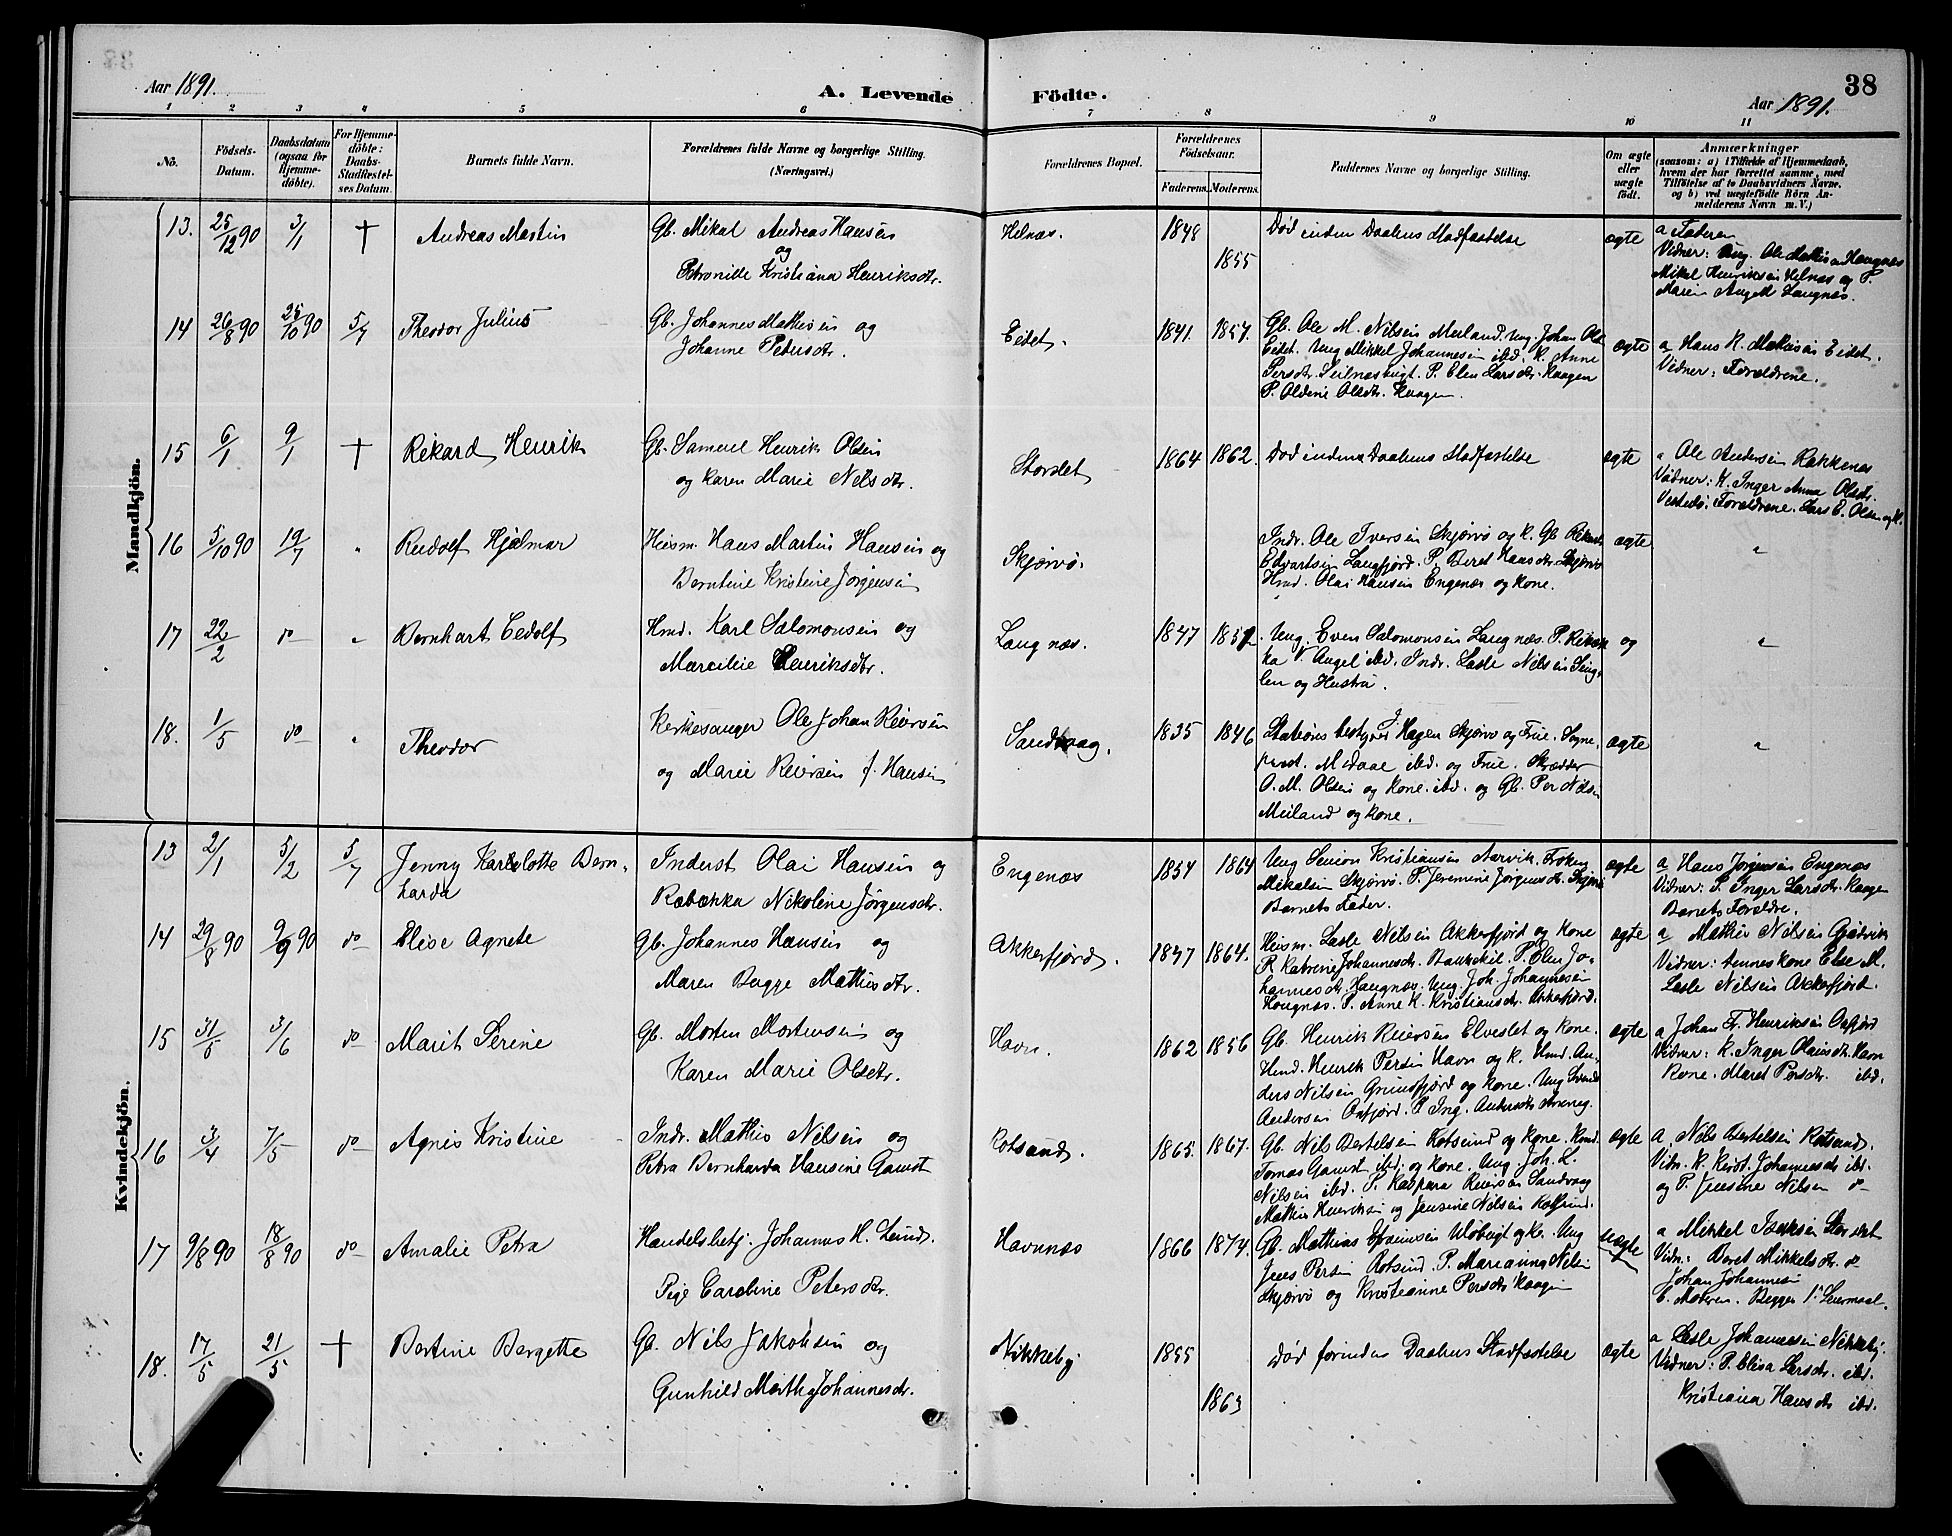 38
Aar 1891.
A. Levende Födte.
Aar 1891.
1 2 3 4 5 6 7 8 9 10 11
Nö.
Födsels-Datum.
Daabsdatum (ogsaa for Hjemme-döbte).
For Hjemme-döbte: Daabs-Stadfæstel-ses Datum.
Barnets fulde Navn.
Forældrenes fulde Navne og borgerlige Stilling. (Næringsvei.)
Forældrenes Bopæl.
Forældrenes Födselsaar.
Faderens. Moderens.
Faddernes Navne og borgerlige Stilling.
Om ægte eller uægte födt.
Anmærkninger
(saasom: a) i Tilfælde af Hjemmedaab,
hvem der har forrettet samme, med
Tilföielse af to Daabsvidners Navne.
og b) ved uægtefödte Börn An-
melderens Navn m. V.)
Mandkjön.
13. 25/12 90 3/1 † Andreas Martin
Gb. Mikal Andreas Hansen
og
Petronille Kristiana Henriksdtr.
Helnæs. 1848 1855
Död inden Daabens Stadfæstelse
ægte
a Faderen
Vidner: Ung. Ole Mathisen Haugnæs
Mikal Henriksen Helnæs og P.
Maren Angell Laugnæs.
14 26/8 90 25/10 90 5/7 Theodor Julius
Gb. Johannes Mathisen og
Johanne Petersdtr.
Eidet. 1841. 1857.
Gb. Ole M. Nilsen Meiland. Ung. Johan Ols.
Eidet. Ung Mikkel Johannesen ibd. K. Anne
Persdtr. Seilnæsbugt. P. Elen Larsdtr. Kaagen
P. Oldine Olsdtr. Kaagen.
ægte
a Hans K. Mathisen Eidet.
Vidner: Forældrene.
15 6/1 9/1 † Rikard Henrik
Gb. Samuel Henrik Olsen
og Karen Marie Nilsdtr.
Storslet 1864 1862.
Död inden Daabens Stadfæstelse
ægte
a Ole Andersen Hakkenæs
Vidner: K. Inger Anna Olsdtr.
Forældrene. Lars E. Olsen og K.
16 5/10 90 19/7 " Rudolf Hjalmar
Heism. Hans Martin Hansen og
Berntine Kristine Jörgensen
Skjærvö.
Indr. Ole Iversen Skjærvö og K. Gb. Rikard
Edvartsen Laugfjord. P. Beret Hansdtr. Skjærvö
Hmd. Olai Hansen Engenæs og kone.
ægte "
17 22/2 do " Bernhart Cedolf
Hmd. Karl Salomonsen og
Marcilie Henriksdtr.
Laugnæs. 1847 1852.
Ung. Even Salomonsen Laugnæs. P. Rebek-
ka V. Angel ibd. Indr. Lasle Nilsen Sing-
len og Hustru.
og "
18. 1/5 do " Theodor
Kirkesanger Ole Johan Reiersen
og Marie Reiersen f. Hansen
Sandvaag. 1835 1846
Stationsbestyrer J. Hagen Skjærvö og Frue. Sogne-
prest. Medaae ibd. og Frue. Skrædder
O. M. Olsen og kone. ibd. og Gb. Per Nilsen
Meiland og kone.
ægte "
Kvindekjön.
13 2/1 5/2 5/7 Jenny Karlslotte Bern-
harda
Inderst Olai Hansen og
Rebekka Nikoline Jörgensdtr.
Engenæs 1857 1864
Ung Simion Kristiansen Narvik. Foken
Mikalsen Skjærvö. P. Jeremine Jörgensdtr. Skjærvö
Barnets Fader.
ægte
a Hans Jörgensen Engenæs
Vidner: P. Inger Larsdtr. Kaagen
Barnets Forældre.
14 29/8 90 9/9 90 do Elise Agnete
Gb. Johannes Hansen og
Maren Bugge Mathisdtr.
Akkerfjord. 1847 1864.
Heism. Lasle Nilsen Akkerfjord og Kone
P. Katrine Johannesdtr. Bankekil. P. Elen Jo-
hannesdtr. Haugnæs. Ung Joh. Johannesen
Haugnæs. P. Anne K. Kristiansdtr. Akkerfjord.
ægte
a Mathis Nilsen Gjedvik
Vidner: hennes kone Else M.
Lasle Nilsen Akkerfjord.
15 31/5 3/6 do Marit Serine
Gb. Morten Mortensen og
Karen Marie Olsdtr.
Havn. 1862 1856
Gb. Henrik Reiersen Elveslet og kone.
Hmd. Henrik Persen Havn og K. Hmd. An-
ders Nilsen Grundfjord og kone. Ung Svend
Andersen Oxfjord. P. Ing. Andersdtr Arnöeng.
ægte
a Johan A. Henriksen Oxfjord
Vidner: K. Inger Olausdtr. Havn
Kone. Maret Persdtr. ibd.
16 3/4 7/5 do Agnes Kristine
Indr. Mathis Nilsen og
Petra Bernharda Hansine Gamst
Rotsund. 1865. 1867.
Gb. Nils Bertelsen Rotsund og Kone. Hmd.
Tomas Gamst ibd. og Kone. Ung Joh. L.
Nilsen ibd. P. Kaspara Reiersen Sandvaag
Mathis Henriksen og Jensine Nilsen Rotsund.
ægte
a. Nils Bertelsen Rotsund.
Vidn. K. Kirst. Johannesdtr ibd.
og P. Jensine Nilsen do
17 9/8 90 18/8 90 do Amalie Petra
Handelsbetj. Johannes H. Lund.
Pige Caroline Petersdtr.
Havnnæs 1866 1874
Gb. Mathias Efraimsen Ulöbugt og k. Ung
Jens Persen Rotsund. P. Marianna Nilsen
Skjærvö og Kristianne Persdtr Kaagen
uægte
a Mikkel Isaksen Storslet
Vidn: Beret Mikkelsdtr. do
Johan Johannesen
b. Moderen. Begges 1ste Leiermaal.
18. 17/5 21/5 † Bertine Bergette
Gb. Nils Jakobsen og
Gunhild Martha Johannesdtr.
Nikkeby 1855 1863
Död forinden Daabens Stadfæstelse
ægte
a Lasle Johannesen Nikkeby.
Vidner: P. Elisa Larsdtr. ibd.
Kristiana Hansdtr ibd.